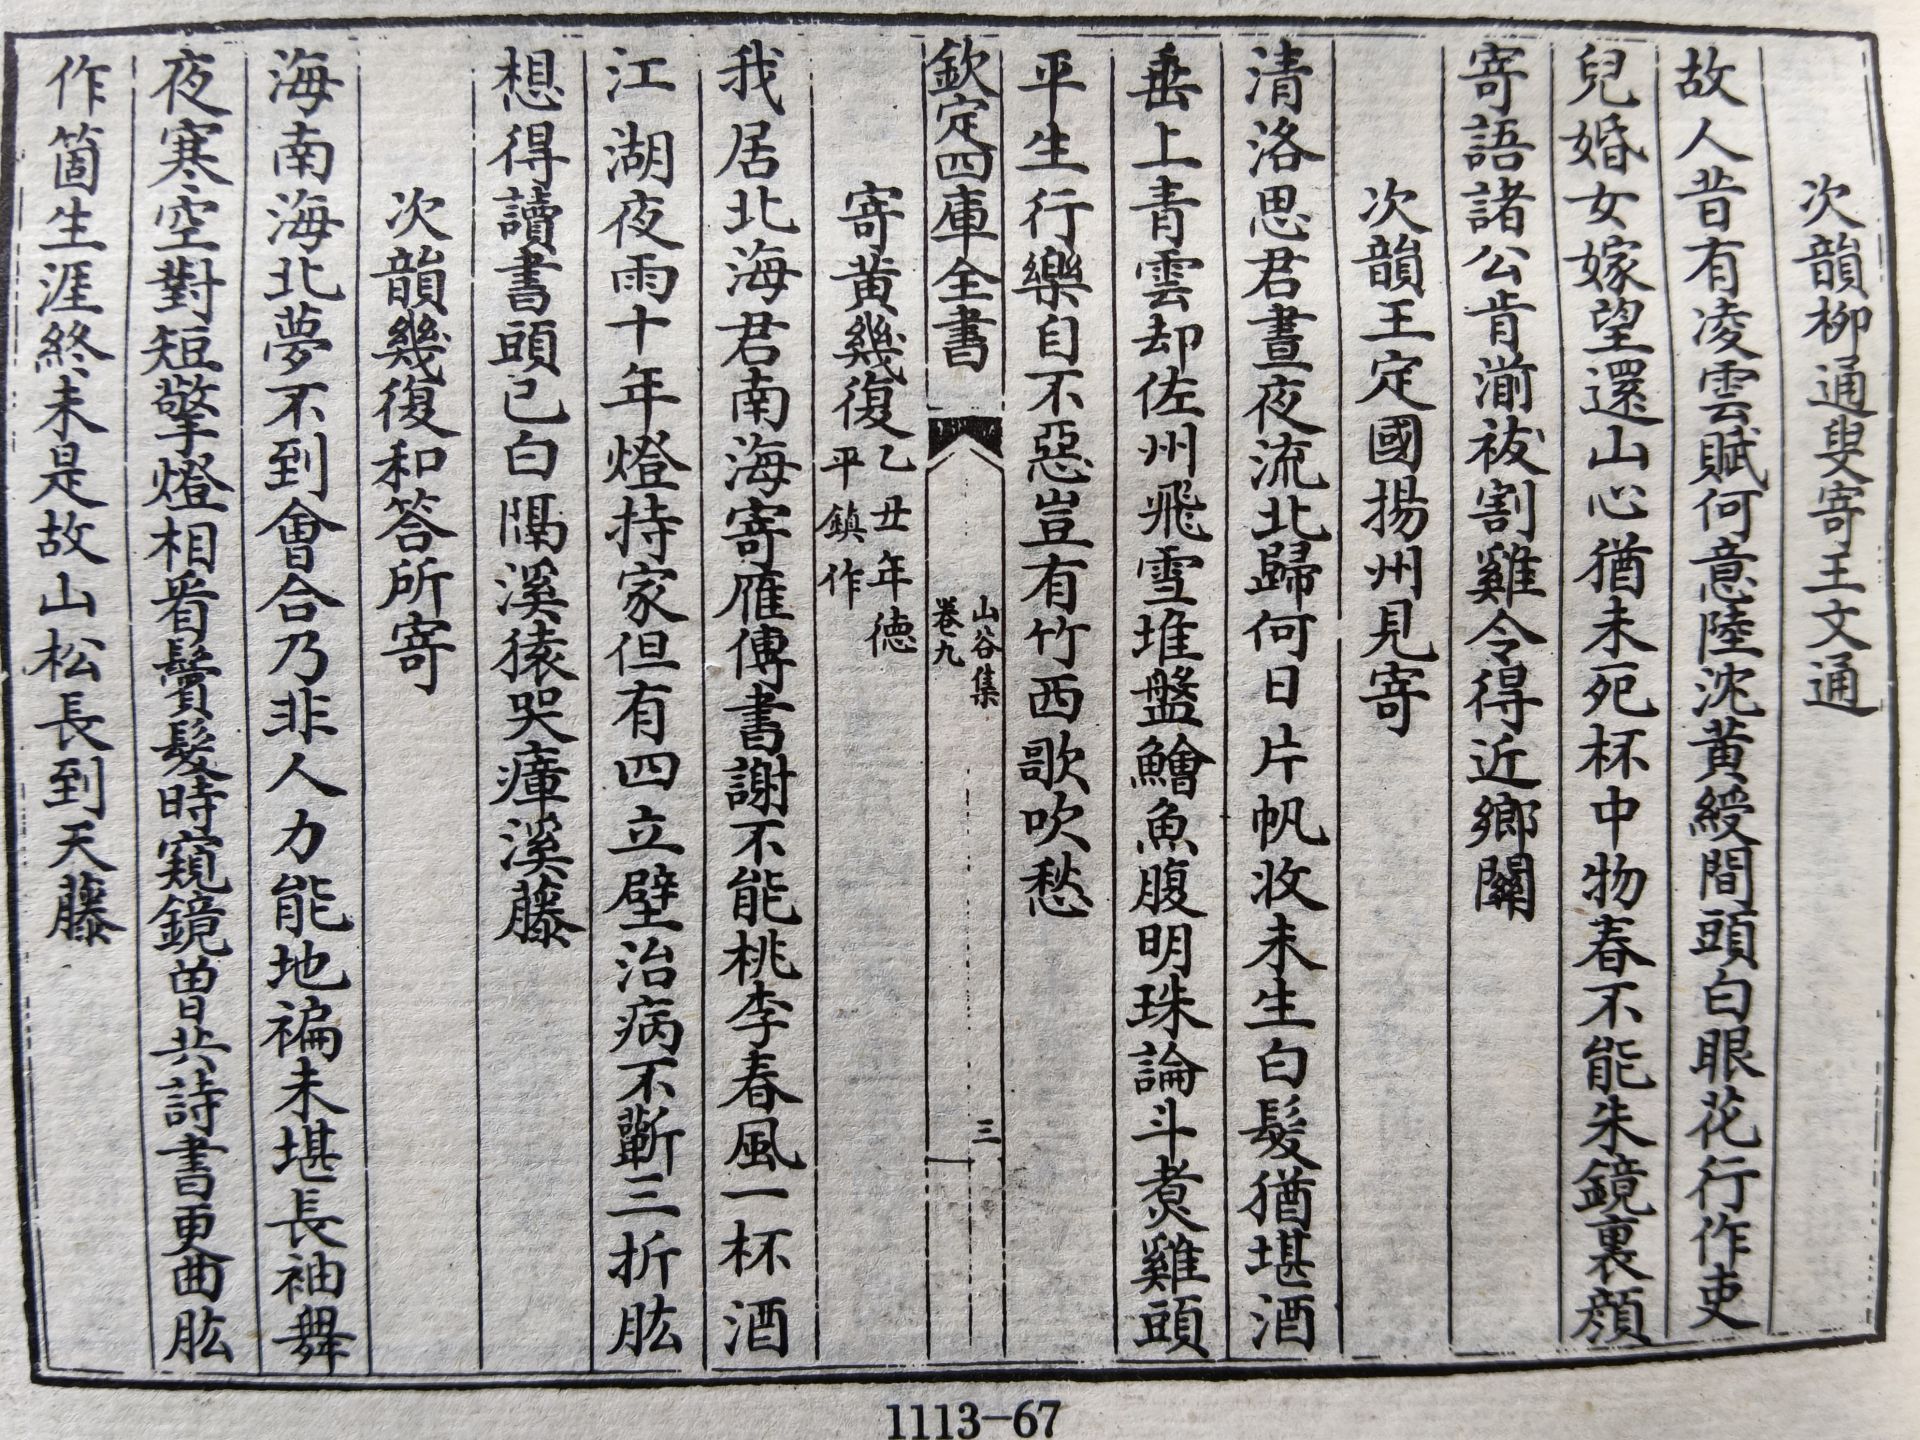 次韻柳通叟寄王文通
故人昔有凌雲賦何意陸沈黄綬間頭白眼花行作吏
兒婚女嫁望還山心猶未死杯中物春不能朱鏡裏顔
寄語諸公肯湔祓割雞令得近鄉關
次韻王定國揚州見寄
清洛思君晝夜流北歸何日片帆收未生白髮猶堪酒
垂上青雲却佐州飛雪堆盤鱠魚腹明珠論斗煮雞頭
平生行樂自不惡豈有竹西歌吹愁
欽定四庫全書
山谷集
卷九
三
寄黄幾復乙丑年德
平鎮作
我居北海君南海寄雁傳書謝不能桃李春風一杯酒
江湖夜雨十年燈持家但有四立壁治病不蘄三折肱
想得讀書頭已白隔溪猿哭瘴溪藤
次韻幾復和答所寄
海南海北夢不到會合乃非人力能地褊未堪長袖舞
夜寒空對短檠燈相看鬢髮時窺鏡曽共詩書更曲肱
作箇生涯終未是故山松長到天藤
1113-67